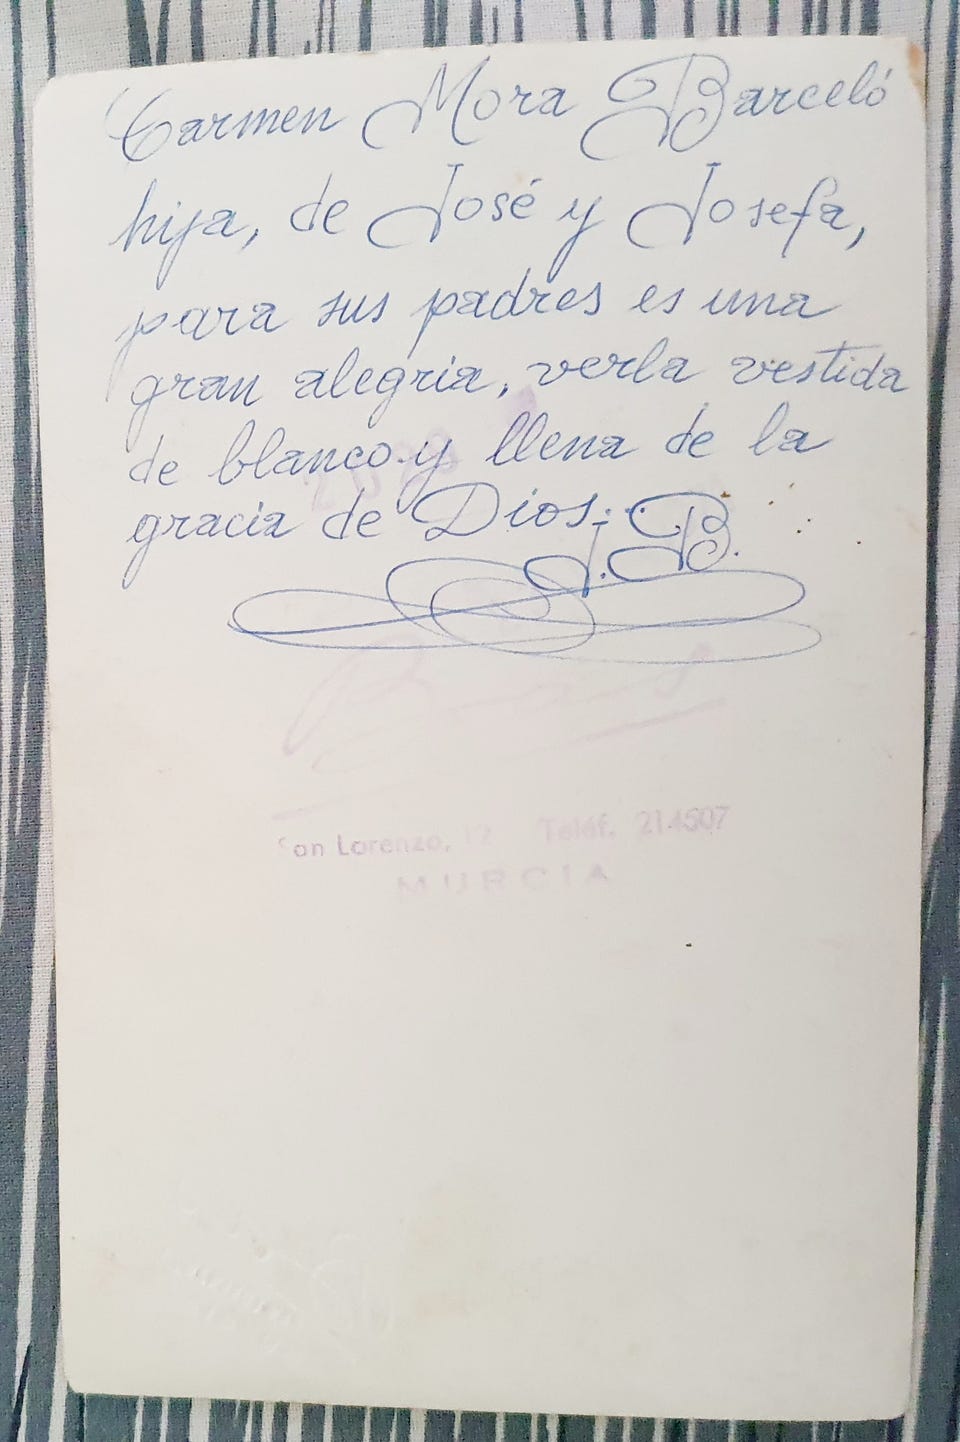 Carmen Mora Barceló
hija, de José y Josefa,
para sus padres es una
gran alegria, verla vestida
de blanco y llena de la
gracia de Dios.
J.B.
San Lorenzo, 12 Teléf. 214507
MURCIA